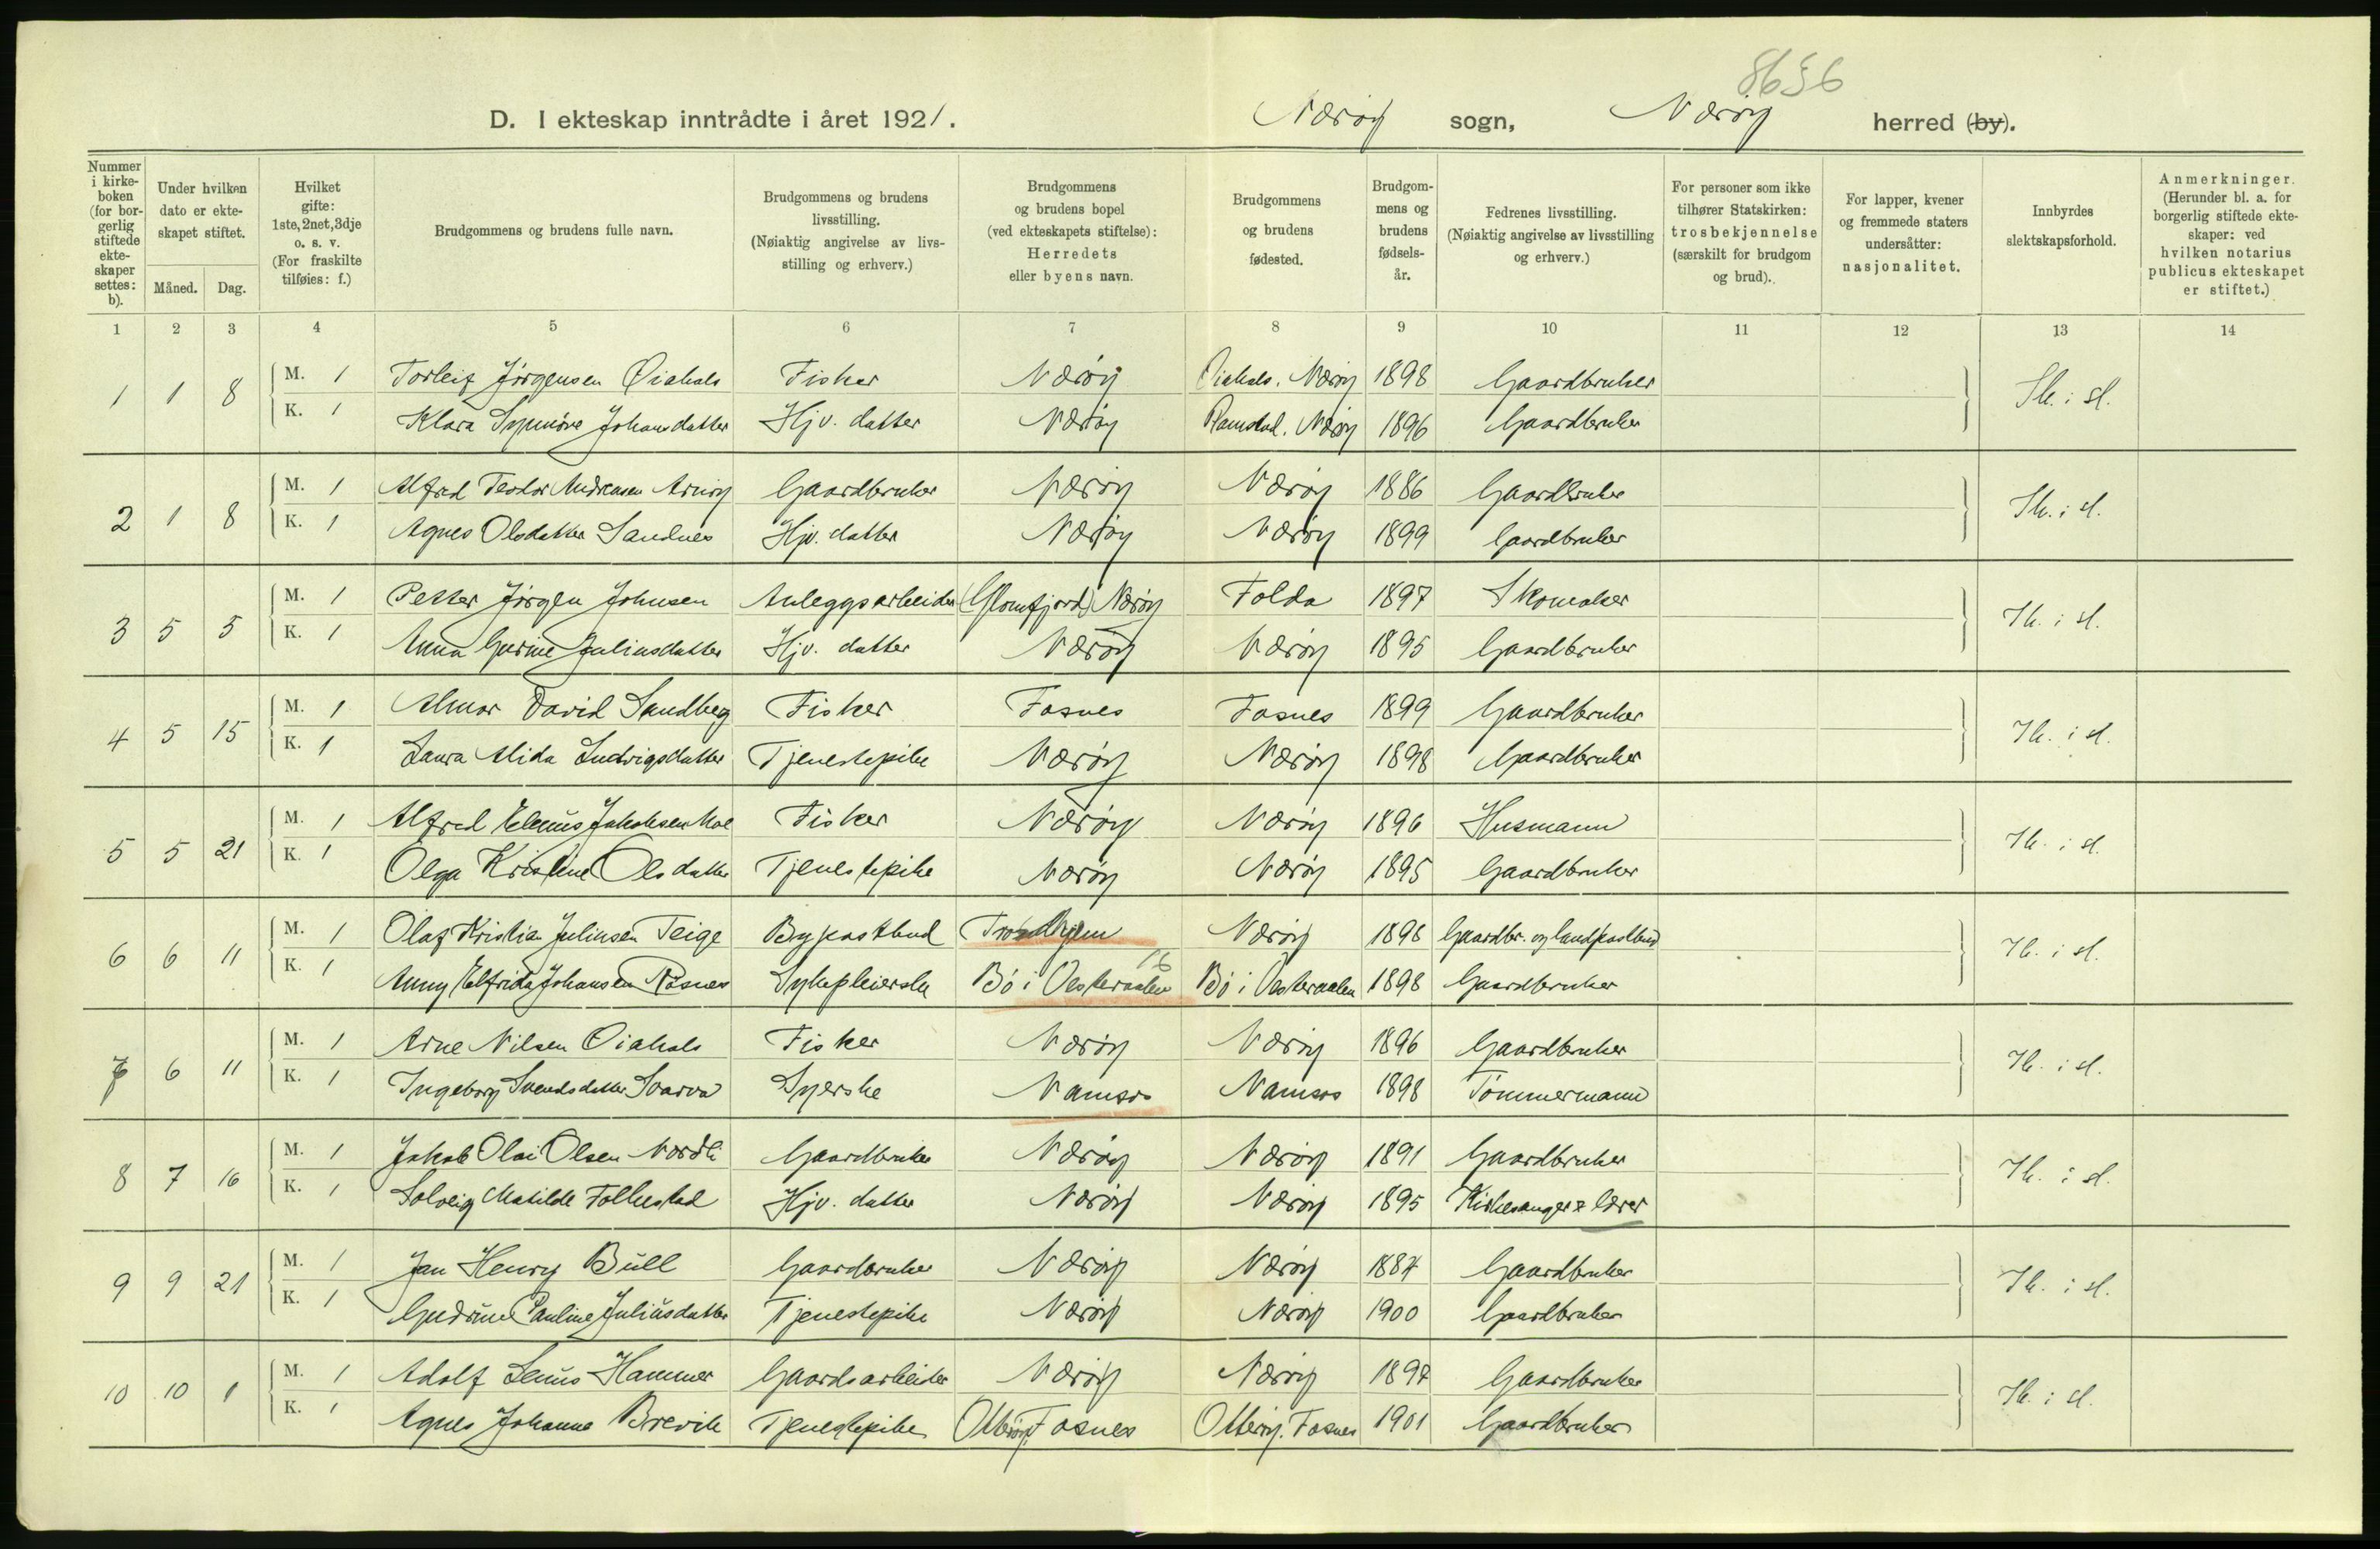 8656
D. I ekteskap inntrådte i året 1921. Nærøy sogn, Nærøy herred (by).
Nummer i kirke-boken (for bor-gerlig stiftede ekte-skaper settes: b).
Under hvilken dato er ekte-skapet stiftet.
Måned. Dag.
Hvilket gifte: 1ste, 2net, 3dje o. s. v. (For fraskilte tilføies: f.)
Brudgommens og brudens fulle navn.
Brudgommens og brudens livsstilling. (Nøiaktig angivelse av livs-stilling og erhverv.)
Brudgommens og brudens bopel (ved ekteskapets stiftelse): Herredets eller byens navn.
Brudgommens og brudens fødested.
Brudgom-mens og brudens fødsels-år.
Fedrenes livsstilling. (Nøiaktig angivelse av livsstilling og erhverv.)
For personer som ikke tilhører Statskirken: trosbekjennelse (særskilt for brudgom og brud).
For lapper, kvener og fremmede staters undersåtter: nasjonalitet.
Innbyrdes slektskapsforhold.
Anmerkninger. (Herunder bl. a. for borgerlig stiftede ekte-skaper: ved hvilken notarius publicus ekteskapet er stiftet.)
1 2 3 4 5 6 7 8 9 10 11 12 13 14
1 1 8 M. 1 Torleif Jørgensen Øiahals Fisker Nærøy Øiahals. Nærøy 1898 Gaardbruker Ik. i sl.
K. 1 Klara Synnøve Johansdatter Hjv. datter Nærøy Ramstad. Nærøy 1896 Gaardbruker
2 1 8 M. 1 Alfred Teodor Andreasen Arnøy Gaardbruker Nærøy Nærøy 1886 Gaardbruker Ik. i sl.
K. 1 Agnes Olsdatter Sandnes Hjv. datter Nærøy Nærøy 1899 Gaardbruker
3 5 5 M. 1 Petter Jørgen Johnsen Anleggsarbeider (Glomfjord) Nærøy Folda 1897 Skomaker Ik. i sl.
K. 1 Anna Gurine Juliusdatter Hjv. datter Nærøy Nærøy 1895 Gaardbruker
4 5 15 M. 1 Almar David Sandberg Fisker Fosnes Fosnes 1899 Gaardbruker Ik. i sl.
K. 1 Laura Alida Ludvigsdatter Tjenestepike Nærøy Nærøy 1898 Gaardbruker
5 5 21 M. 1 Alfred Jakobsen Fisker Nærøy Nærøy 1896 Husmann Ik. i sl.
K. 1 Olga Kristine Olsdatter Tjenestepike Nærøy Nærøy 1895 Gaardbruker
6 6 11 M. 1 Olaf Kristian Juliusen Teige Bypostbud Trondhjem Nærøy 1896 Gaardbr. og landpostbud Ik. i sl.
K. 1 Anny Elfrida Johansen Røsnes Sykepleierske Bø i Vesteraalen Bø i Vesteraalen 1898 Gaardbruker
7 6 11 M. 1 Arne Nilsen Øiahals Fisker Nærøy Nærøy 1896 Gaardbruker Ik. i sl.
K. 1 Ingeborg Svendsdatter Svarva Syerske Namsos Namsos 1898 Tømmermann
8 7 16 M. 1 Jakob Olai Olsen Nordli Gaardbruker Nærøy Nærøy 1891 Gaardbruker Ik. i sl.
K. 1 Solveig Matilde Folkestad Hjv. datter Nærøy Nærøy 1895 Kirkesanger & lærer
9 9 21 M. 1 Jan Henry Bull Gaardbruker Nærøy Nærøy 1887 Gaardbruker Ik. i sl.
K. 1 Gudrun Pauline Juliusdatter Tjenestepike Nærøy Nærøy 1900 Gaardbruker
10 10 1 M. 1 Adolf Lenus Hammer Gaardsarbeider Nærøy Nærøy 1897 Gaardbruker Ik. i sl.
K. 1 Agnes Johanna Brevik Tjenestepike Otterøy. Fosnes Otterøy. Fosnes 1901 Gaardbruker